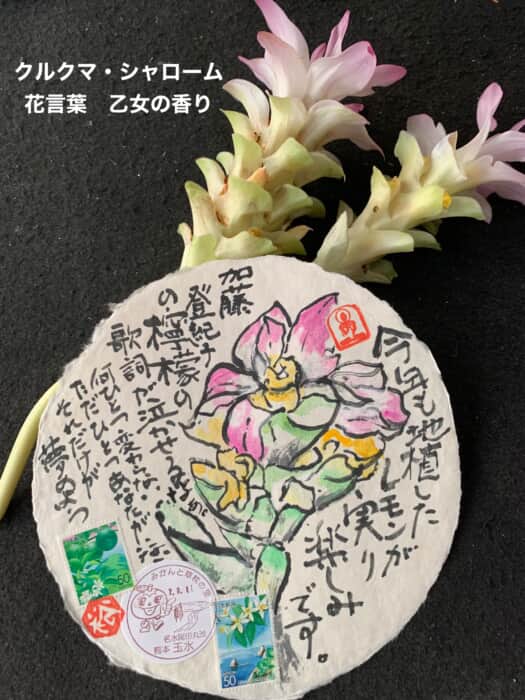 クルクマ・シャローム
花言葉 乙女の香り
今年も地植した
レモンが
実り
楽しみ
です。
加藤
登紀子
の檸檬の
歌詞が泣かせる
何ひとつ変わらない
ただひとつあなたがいない
それだけが
夢のよう
50
みかんと草枕の里
名水尾田丸池
熊本 玉水
50